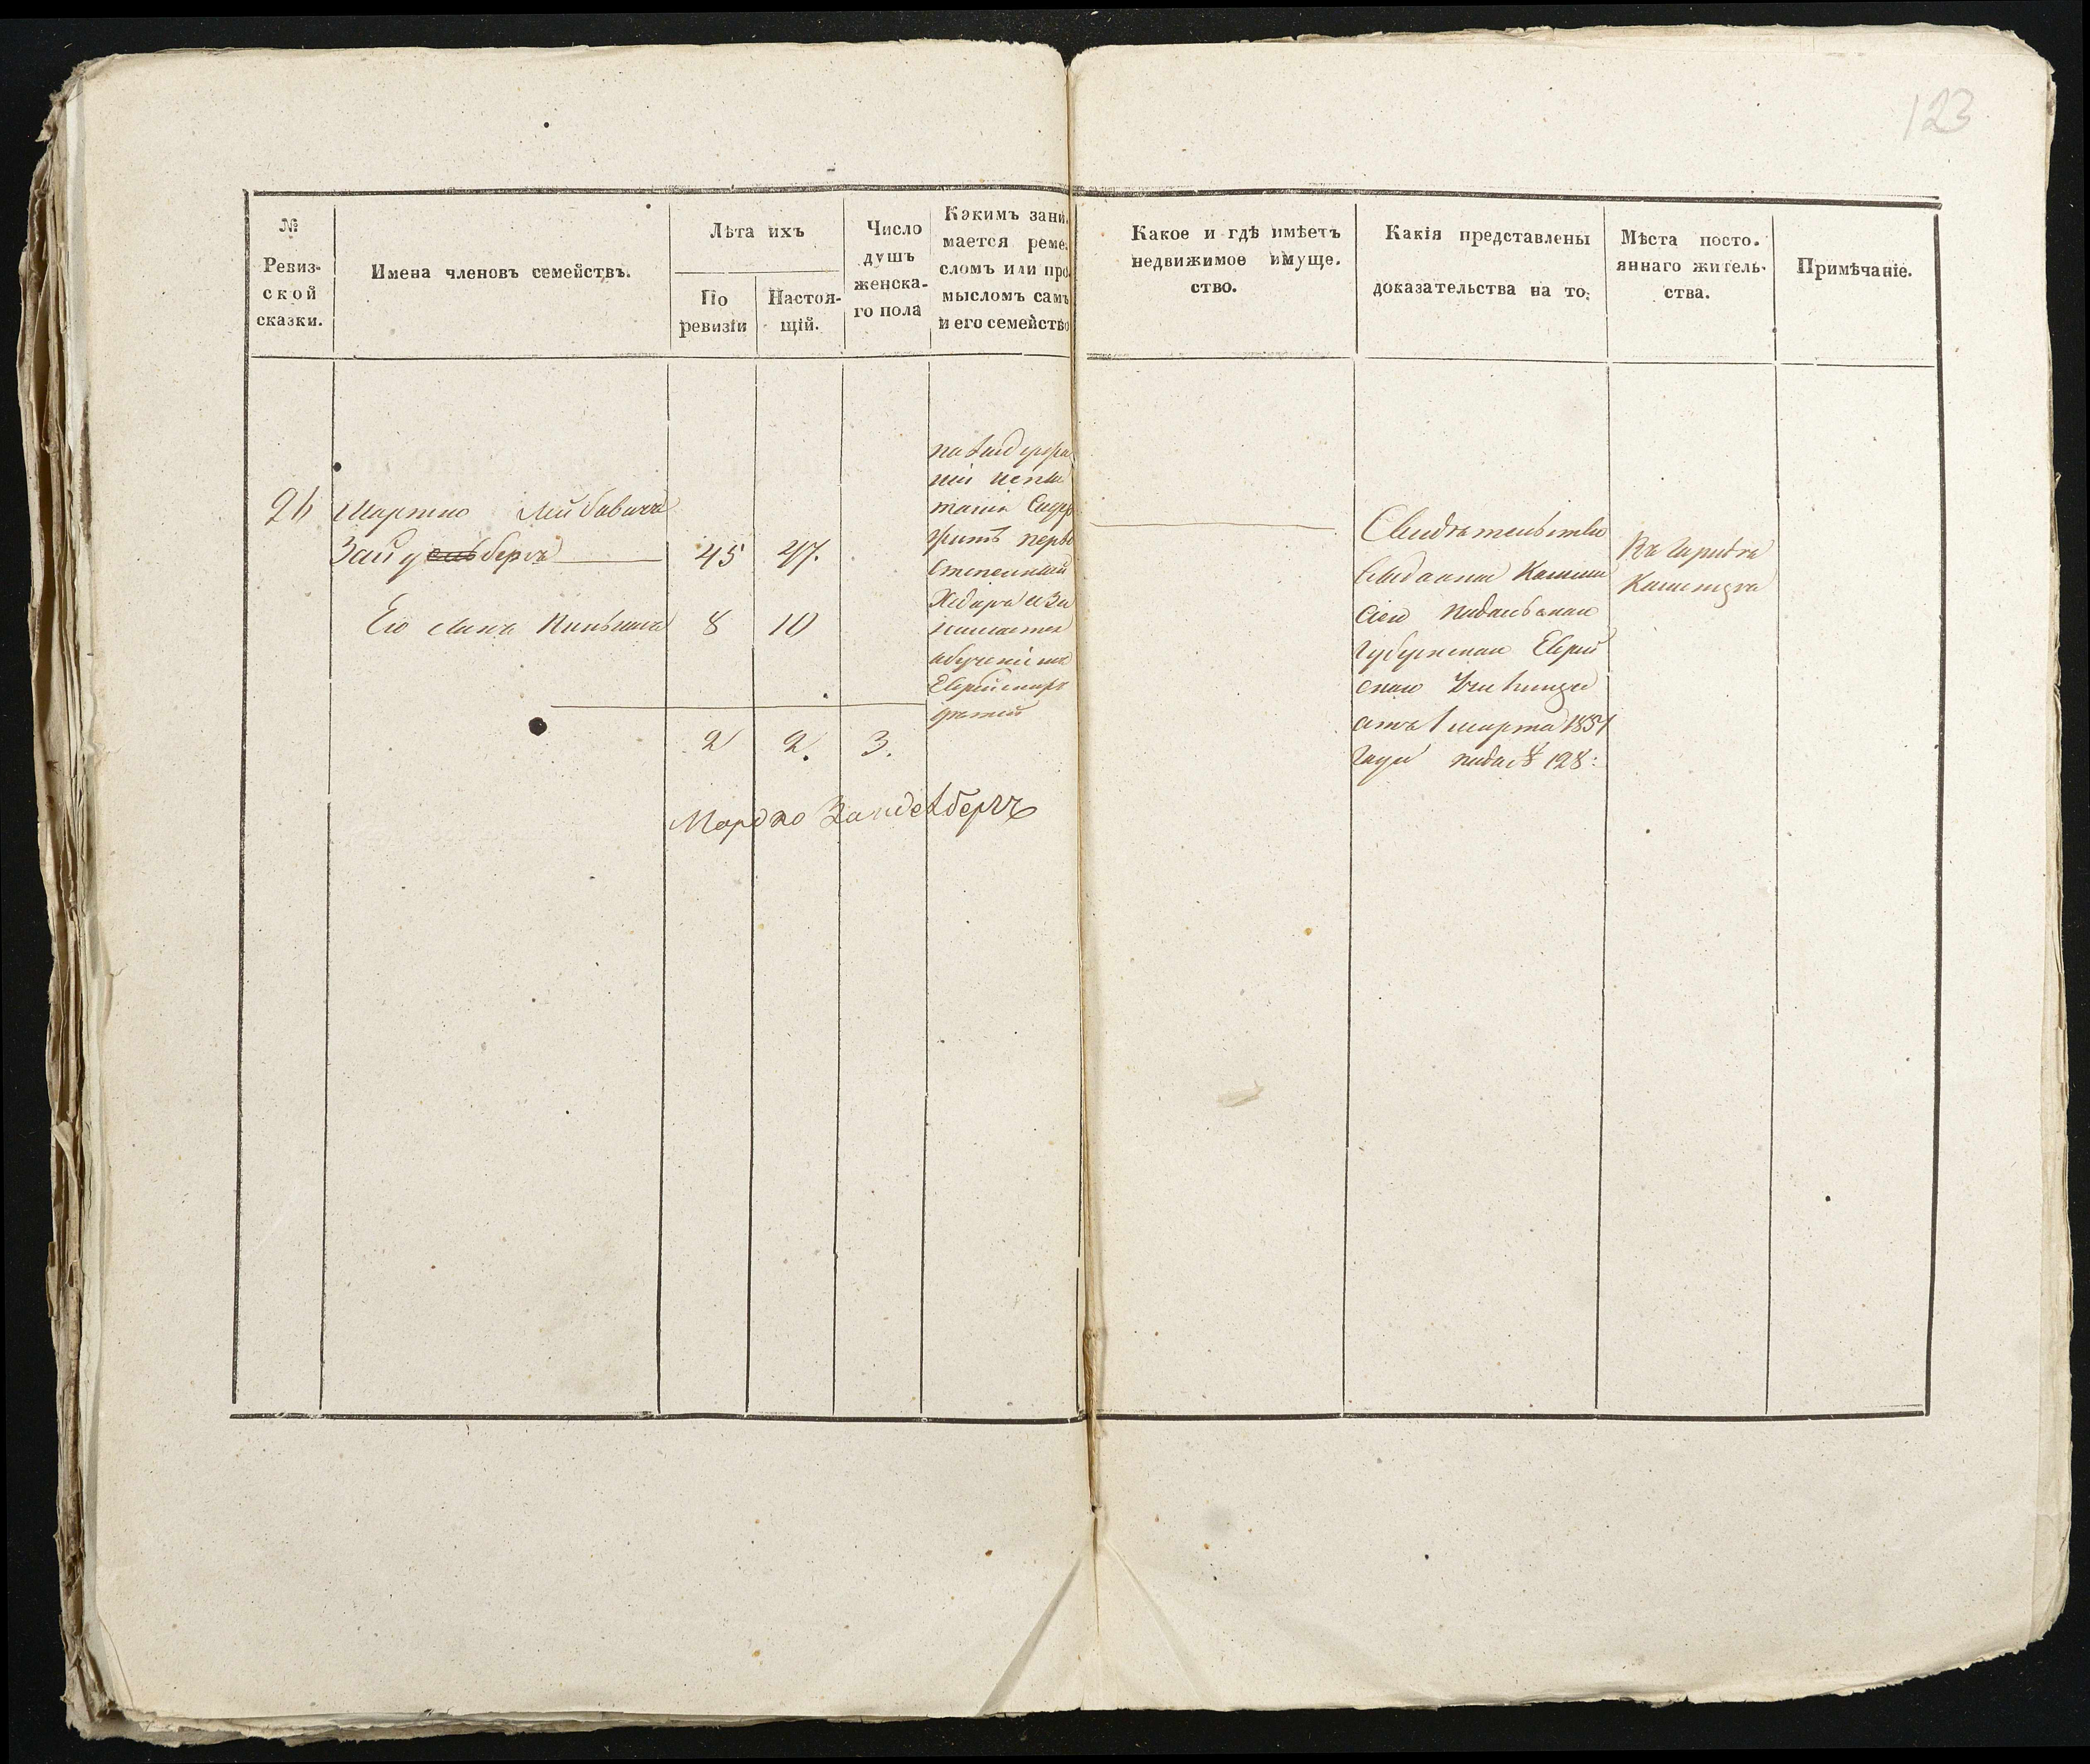 123
№
Ревиз-
ской
сказки.
Имена членовъ семействъ.
Лѣта ихъ
По
ревизіи
Настоя-
щій.
Число
душъ
женска-
го пола
Какимъ зани.
мается реме.
сломъ или про
мысломъ самъ
и его семейство
Какое и гдѣ имѣетъ
недвижимое имуще.
ство.
Какія представлены
доказательства на то:
Мѣста посто.
яннаго житель-
ства.
Примѣчаніе.
Лейбовичъ
Зайденбергъ 45 47.
Его сынъ 8 10
2 2. 3.
нія испы
танія Содер
житъ перво
степенный
Хедеръ и за
нимается
обученіемъ
Еврейскихъ
дѣтей
Свидѣтельство
выданное Комми
сіею Подольскою
Губернскою Еврей
скою
отъ 1 марта 1851
года 128:
Въ городѣ
Мордко Зайделбергъ